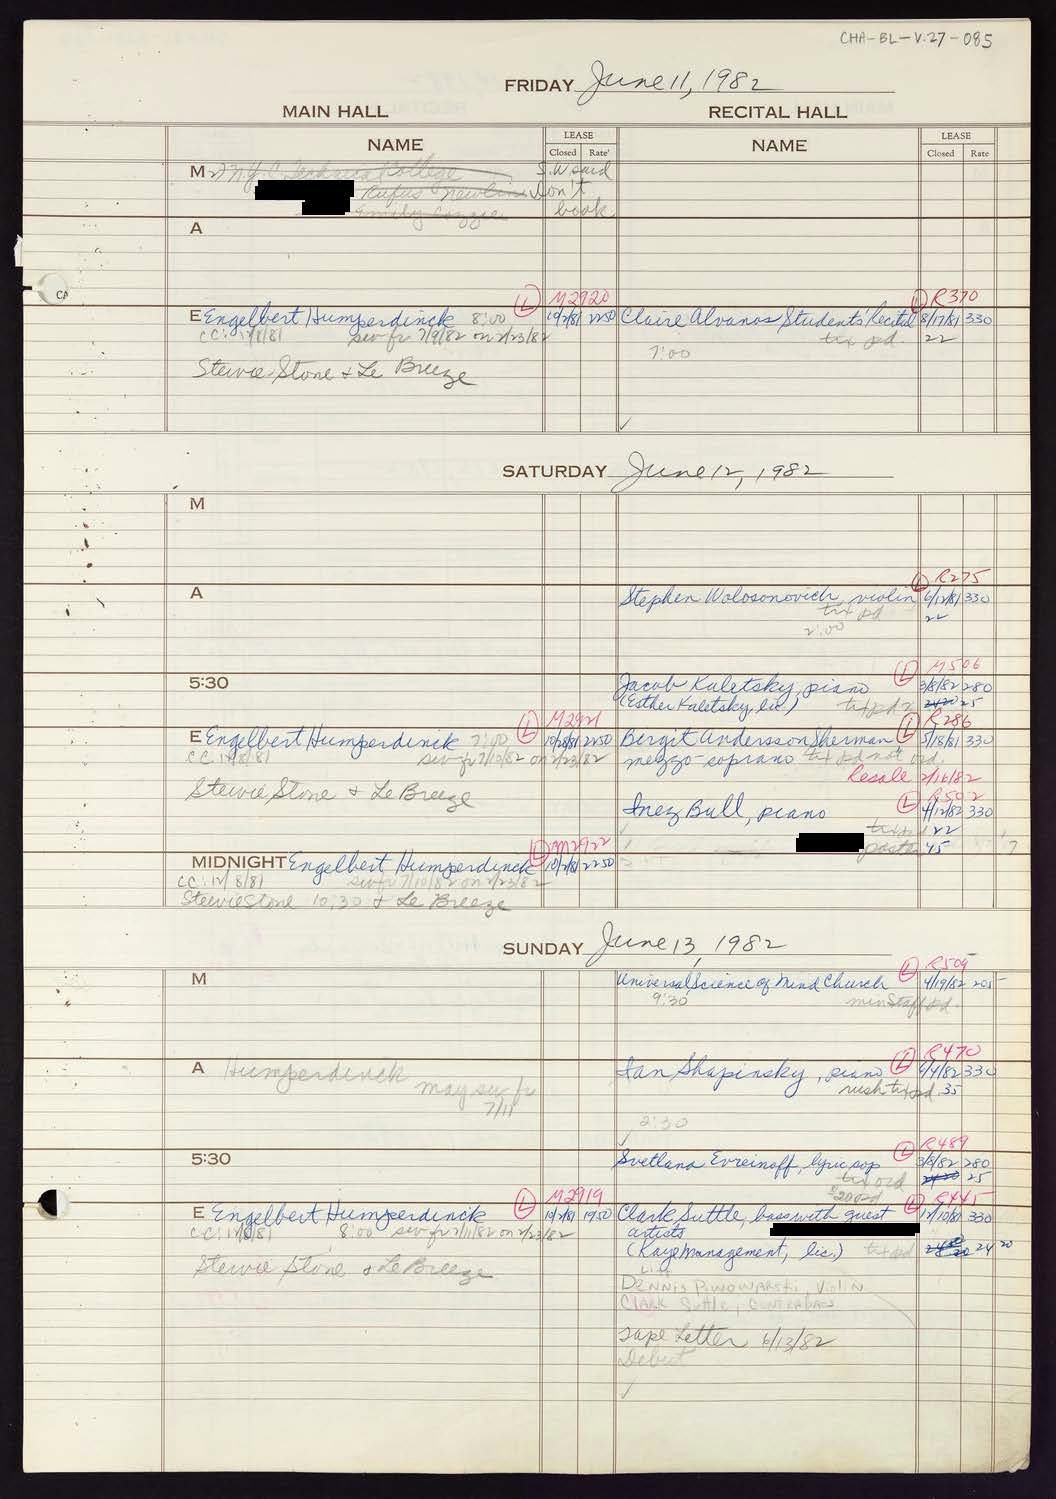 CHA-BL-V.27-085
FRIDAY June 11, 1982
MAIN HALL RECITAL HALL
NAME LEASE Closed Rate NAME LEASE Closed Rate
M N.Y.C. Technical College S.W said
Rufus Newlin Don't
Emily Cozzie book
A
M2920 R370
E Engelbert Humperdinck 8:00 L 10/2/81 2250 Claire Alvanos Students' Recital L 8/17/81 330
CC: 12/8/81 sw fr 7/9/82 on 2/23/82 tix pd. 22
7:00
Stewie Stone + Le Breeze
SATURDAY June 12, 1982
M
R275
A Stephen Wolosonovich, violin L 6/12/81 330
tix pd 22
2:00
M506
5:30 Jacob Kaletsky, piano L 3/8/82 280
(Esther Kaletsky, lic.) tix pd 25
M2921 R286
E Engelbert Humperdinck 7:00 L 10/2/81 2250 Birgit Andersson Sherman L 5/18/81 330
CC: 12/8/81 sw fr 7/10/82 on 2/23/82 mezzo-soprano tix pd not ord.
Resale 2/16/82
Stewie Stone + Le Breeze
R502
Inez Bull, piano L 4/12/82 330
tix pd 22
poster 45
M2922
MIDNIGHT Engelbert Humperdinck L 10/2/81 2250
CC: 12/8/81 sw fr 7/10/82 on 2/23/82
Stewie Stone 10:30 + Le Breeze
SUNDAY June 13, 1982
R509
M Universal Science of Mind Church L 4/19/82 205
9:30 min staff pd.
R470
A Humperdinck Ian Shapinsky, piano L 330
may sw fr rush tix pd. 35
7/11
2:30
R489
5:30 Svetlana Evreinoff, lyric sop L 3/8/82 280
tix ord 25
$20 pd
M2919 R445
E Engelbert Humperdinck L 10/2/81 1950 Clark Suttle, bass with guest L 12/10/81 330
CC: 12/8/81 8:00 sw fr 7/11/82 on 2/23/82 artists
(Kaye Management, lic.) tix pd 24 20
Stewie Stone + Le Breeze
DENNIS PIWOWARSKI, VIOLIN
CLARK SUTTLE, CONTRABASS
Tape Letter 6/13/82
Debut